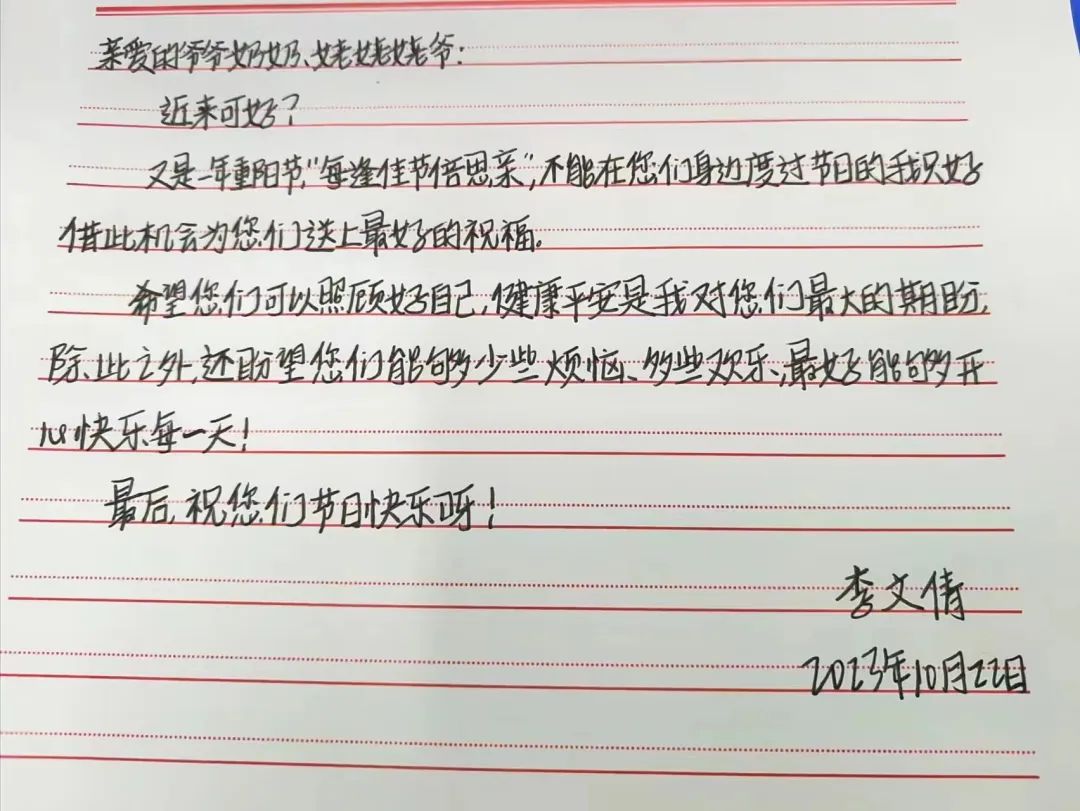 亲爱的爷爷奶奶、姥姥姥爷：
近来可好？
又是一年重阳节，“每逢佳节倍思亲”，不能在您们身边度过节日的我只好
借此机会为您们送上最好的祝福。
希望您们可以照顾好自己，健康平安是我对您们最大的期盼，
除此之外，还盼望您们能够少些烦恼、多些欢乐，最好能够开
心快乐每一天！
最后，祝您们节日快乐呀！
李文倩
2023年10月22日